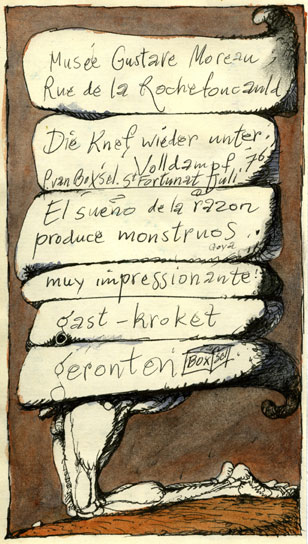 Musée Gustave Moreau,
Rue de la Rochefoucauld
Die Knef wieder unter
Volldampf. 76
P. van Boxsel. St Fortunat Juli
El sueño de la razon
produce monstruos..
Goya
muy impressionante!
gast-kroket
geronten Boxsel